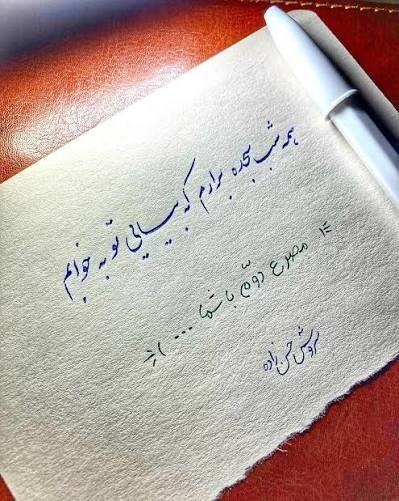 همه شب سجده برآرم که بیایی تو به خوابم
مصرع دوّم با شما ...
سروش حسن زاده